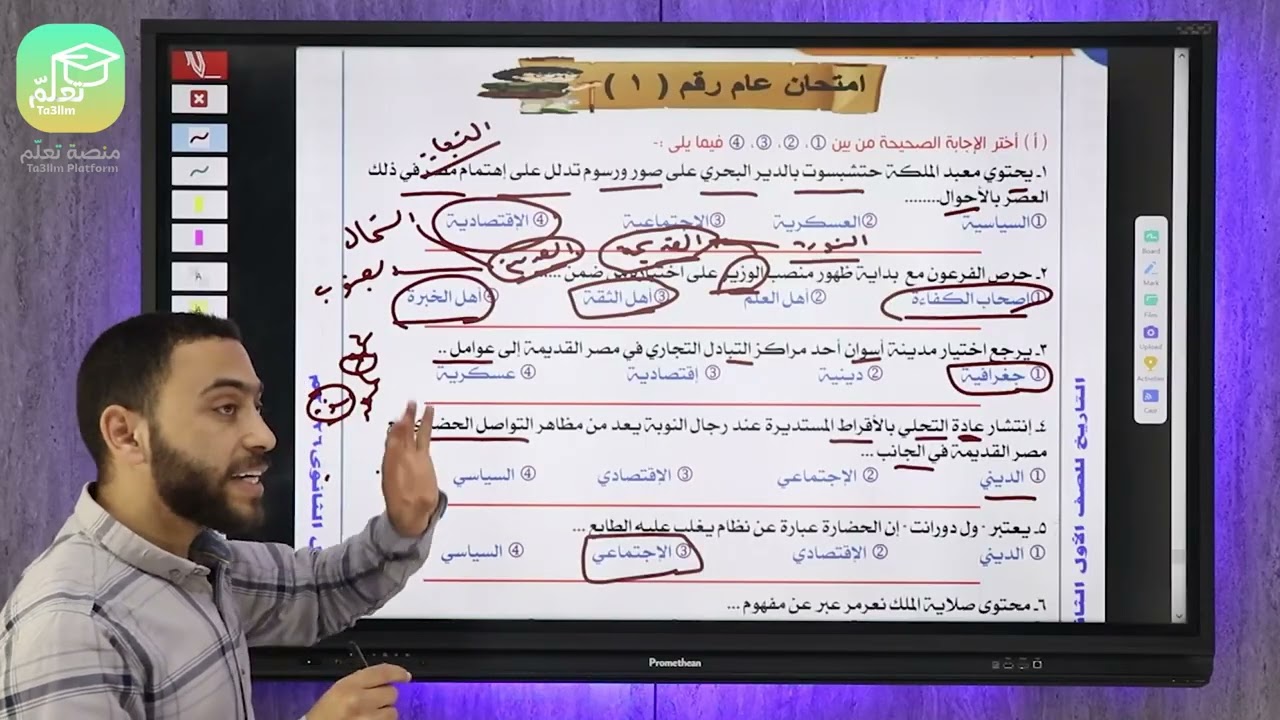 تعلّم
Ta3llm
منصة تعلّم
Ta3llm Platform
امتحان عام رقم ( ١ )
( أ ) أختر الإجابة الصحيحة من بين ①، ②، ③، ④ فيما يلى :-
١ـ يحتوي معبد الملكة حتشبسوت بالدير البحري على صور ورسوم تدلل على إهتمام مصر في ذلك
العصر بالأحوال........
① السياسية ② العسكرية ③ الإجتماعية ④ الإقتصادية
النوبة القديمة
الشمال
الجنوب
٢ـ حرص الفرعون مع بداية ظهور منصب الوزير على اختياره من ضمن ....
① أصحاب الكفاءة ② أهل العلم ③ أهل الثقة ④ أهل الخبرة
٣ـ يرجع اختيار مدينة أسوان أحد مراكز التبادل التجاري في مصر القديمة إلى عوامل ..
① جغرافية ② دينية ③ إقتصادية ④ عسكرية
٤ـ إنتشار عادة التحلي بالأقراط المستديرة عند رجال النوبة يعد من مظاهر التواصل
مصر القديمة في الجانب ...
① الديني ② الإجتماعي ③ الإقتصادي ④ السياسي
٥ـ يعتبر - ول دورانت - إن الحضارة عبارة عن نظام يغلب عليه الطابع ...
① الديني ② الإقتصادي ③ الإجتماعي ④ السياسي
٦ـ محتوى صلاية الملك نعرمر عبر عن مفهوم ...
التاريخ للصف الأول
الثانوى
Board
Mark
Files
Upload
Activities
Cast
Promethean